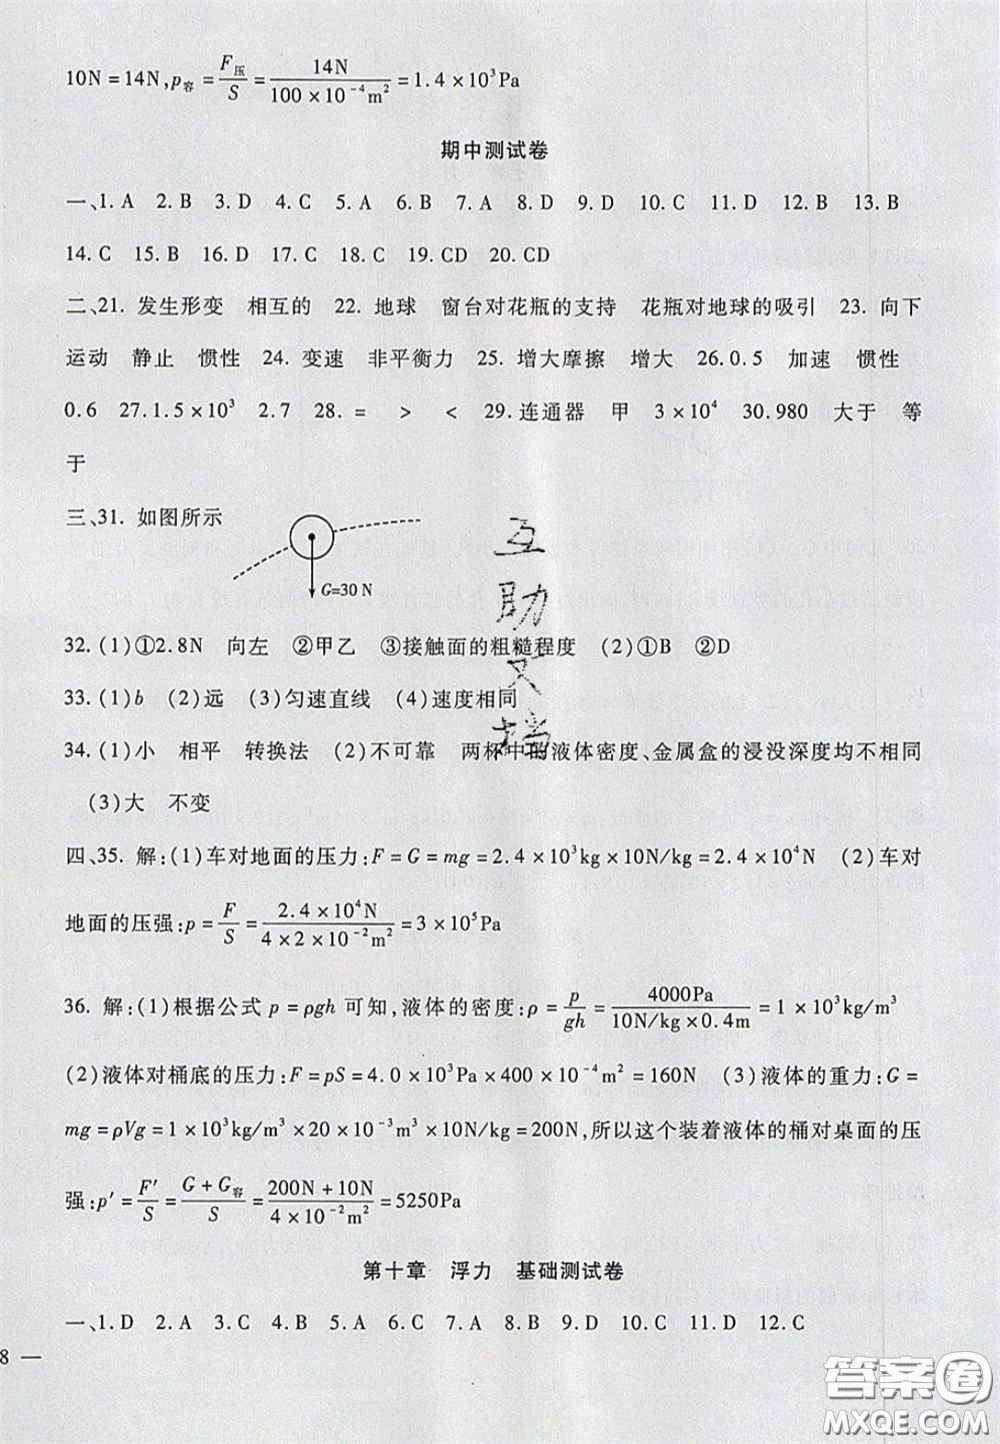 10N=14N,p容=F压/S=14N/(100×10⁻⁴m²)=1.4×10³Pa
期中测试卷
一、1. A 2. B 3. D 4. C 5. A 6. B 7. A 8. D 9. D 10. C 11. D 12. B 13. B
14. C 15. B 16. D 17. C 18. C 19. CD 20. CD
二、21. 发生形变 相互的 22. 地球 窗台对花瓶的支持 花瓶对地球的吸引 23. 向下
运动 静止 惯性 24. 变速 非平衡力 25. 增大摩擦 增大 26. 0.5 加速 惯性
0.6 27. 1.5×10³ 2.7 28. = > < 29. 连通器 甲 3×10⁴ 30. 980 大于 等
于
三、31. 如图所示
G=30 N
32. (1)①2.8N 向左 ②甲乙 ③接触面的粗糙程度 (2)①B ②D
33. (1)b (2)远 (3)匀速直线 (4)速度相同
34. (1)小 相平 转换法 (2)不可靠 两杯中的液体密度、金属盒的浸没深度均不相同
(3)大 不变
四、35. 解:(1)车对地面的压力:F=G=mg=2.4×10³kg×10N/kg=2.4×10⁴N (2)车对
地面的压强:p=F/S=2.4×10⁴N/(4×2×10⁻²m²)=3×10⁵Pa
36. 解:(1)根据公式 p=ρgh 可知,液体的密度:ρ=p/gh=4000Pa/(10N/kg×0.4m)=1×10³kg/m³
(2)液体对桶底的压力:F=pS=4.0×10³Pa×400×10⁻⁴m²=160N (3)液体的重力:G=
mg=ρVg=1×10³kg/m³×20×10⁻³m³×10N/kg=200N,所以这个装着液体的桶对桌面的压
强:p′=F′/S=(G+G容)/S=(200N+10N)/(4×10⁻²m²)=5250Pa
第十章 浮力 基础测试卷
一、1. D 2. A 3. C 4. B 5. A 6. C 7. A 8. B 9. D 10. C 11. D 12. C
8 —
互助文档
答案圈
MXQE.COM